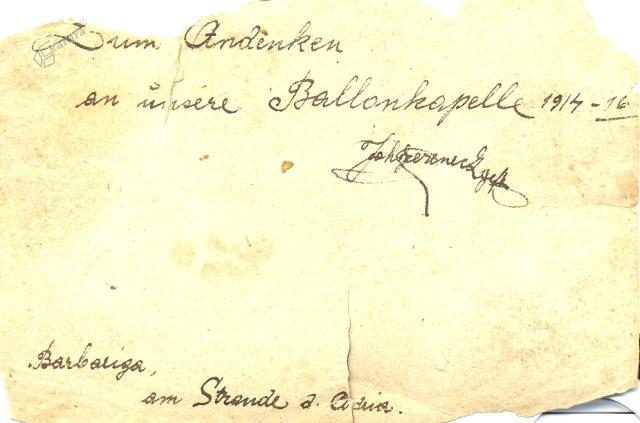 Zum Andenken
an unsere Ballonkapelle 1914-16
Barbariga,
am Strande d. Adria.